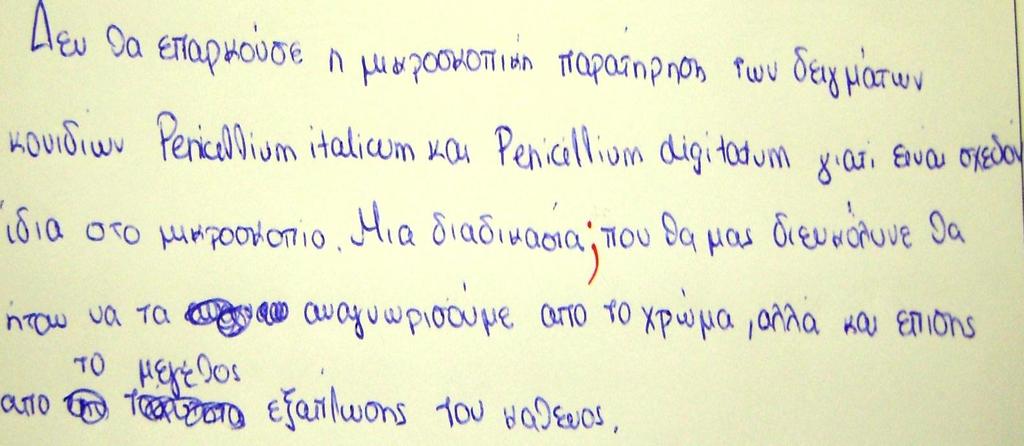 Δεν θα επαρκούσε η μικροσκοπική παρατήρηση των δειγμάτων
κονιδίων Penicillium italicum και Penicillium digitatum γιατί είναι σχεδόν
ίδια στο μικροσκοπιο. Μια διαδικασία; που θα μας διευκόλυνε θα
ήταν να τα αναγνωρισουμε απο το χρώμα, αλλά και επισης
το μεγεθος
απο εξαπλωσης του καθενος.